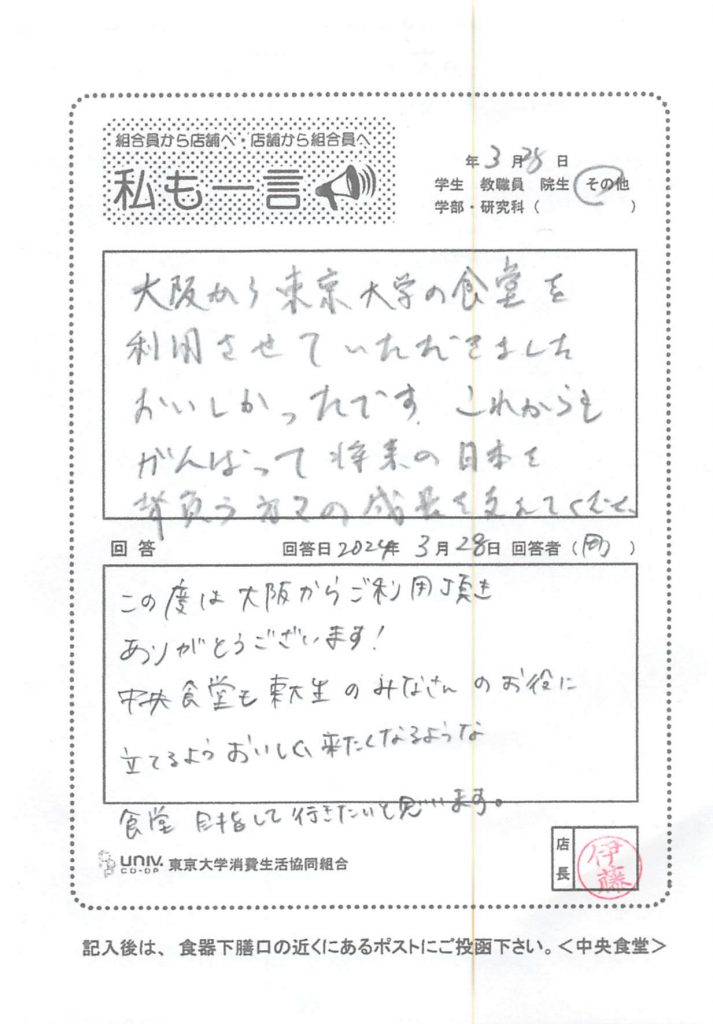 組合員から店舗へ・店舗から組合員へ
私も一言
年 3 月 28 日
学生 教職員 院生 その他
学部・研究科（ ）
大阪から東京大学の食堂を
利用させていただきました
おいしかったです。これからも
がんばって将来の日本を
背負う方々の成長を支えてください
回答 回答日2024年 3月28日 回答者（岡）
この度は大阪からご利用頂き
ありがとうございます!
中央食堂も東大生のみなさんのお役に
立てるようおいしく、来たくなるような
食堂 目指して行きたいと思います。
UNIV. CO-OP 東京大学消費生活協同組合
店長 伊藤
記入後は、食器下膳口の近くにあるポストにご投函下さい。＜中央食堂＞